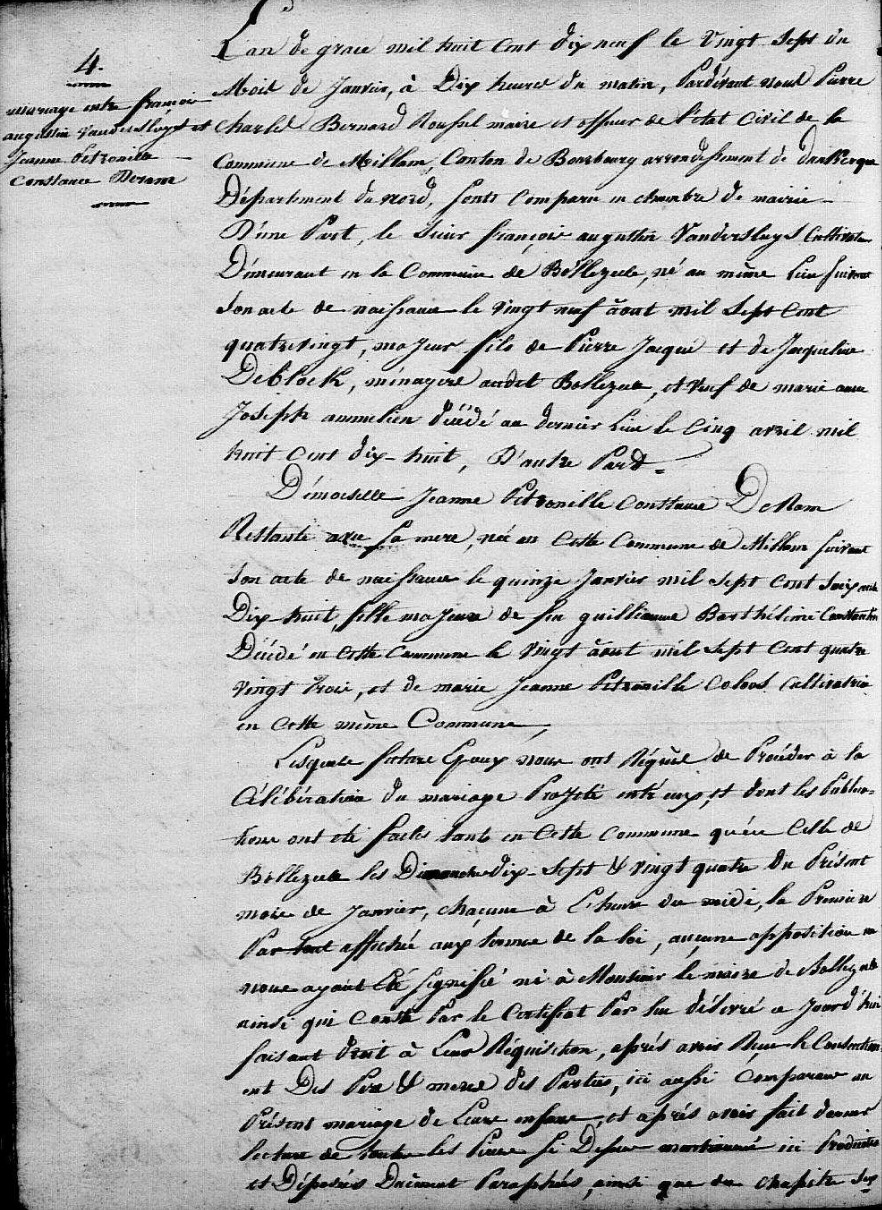 4.
mariage entre françois
augustin Vandersluys et
Jeanne Petronille
Constance Deram
L'an de grace mil huit cent dix neuf le Vingt Sept du
Mois de Janvier, à Dix heures du matin, Pardevant nous Pierre
Charles Bernard Roussel maire et officier de l'état Civil de la
Commune de Millam, Canton de Bourbourg arrondissement de dunkerque
Département du nord, sonts comparu en chambre de mairie
D'une Part, le Sieur françois augustin Vandersluys Cultivateur
Démeurant en la Commune de Bollezeele, né au même Lieu suivant
Son acte de naissance le vingt neuf août mil Sept Cent
quatrevingt, majeur fils de Pierre Jacque et de Jacqueline
Deblock, ménagere audit Bollezeele, et veuf de marie anne
Joseph ammelien décédé au dernier Lieu le Cinq avril mil
huit Cent dix-huit, D'autre Part
Démoiselle Jeanne Petronille Constance DeRam
Restante avec Sa mere, née en Cette Commune de Millam suivant
Son acte de naissance le quinze Janvier mil Sept Cent Soixante
Dix-huit, fille majeure de feu guillianme Barthélimi Constantin
Décédé en Cette Commune le Vingt août mil Sept Cent quatre
Vingt trois, et de marie Jeanne Petronille Colous Cultivatrice
en Cette même Commune,
Lesquels futurs Epoux nous ont Réquis de Procéder à la
Célébration du mariage Projeté entr'eux, et dont les Publica-
tions ont été faites tants en Cette Commune qu'en Celle de
Bollezeele les Dimanche dix-Sept & vingt quatre du Présent
mois de Janvier, chacune à L'heure du midi, la Premiere
Par tout affichée aux termes de la loi, aucune opposition ne
nous ayant été signifié ni à Monsieur le maire de Bollezeele
ainsi qui Conste Par le Certificat Par lui délivré ce Jourd'hui
faisant droit à Leur Réquisition, après avoir Reçu le Consentem
ent Des Pere & meres des Parties, ici aussi Comparus au
Présent mariage de Leurs enfans, et après avoir fait donner
lecture de toutes les Pieces Ci Dessus mentionnée ici Produites
et Déposées Dûement Paraphées, ainsi que du Chapitre Six